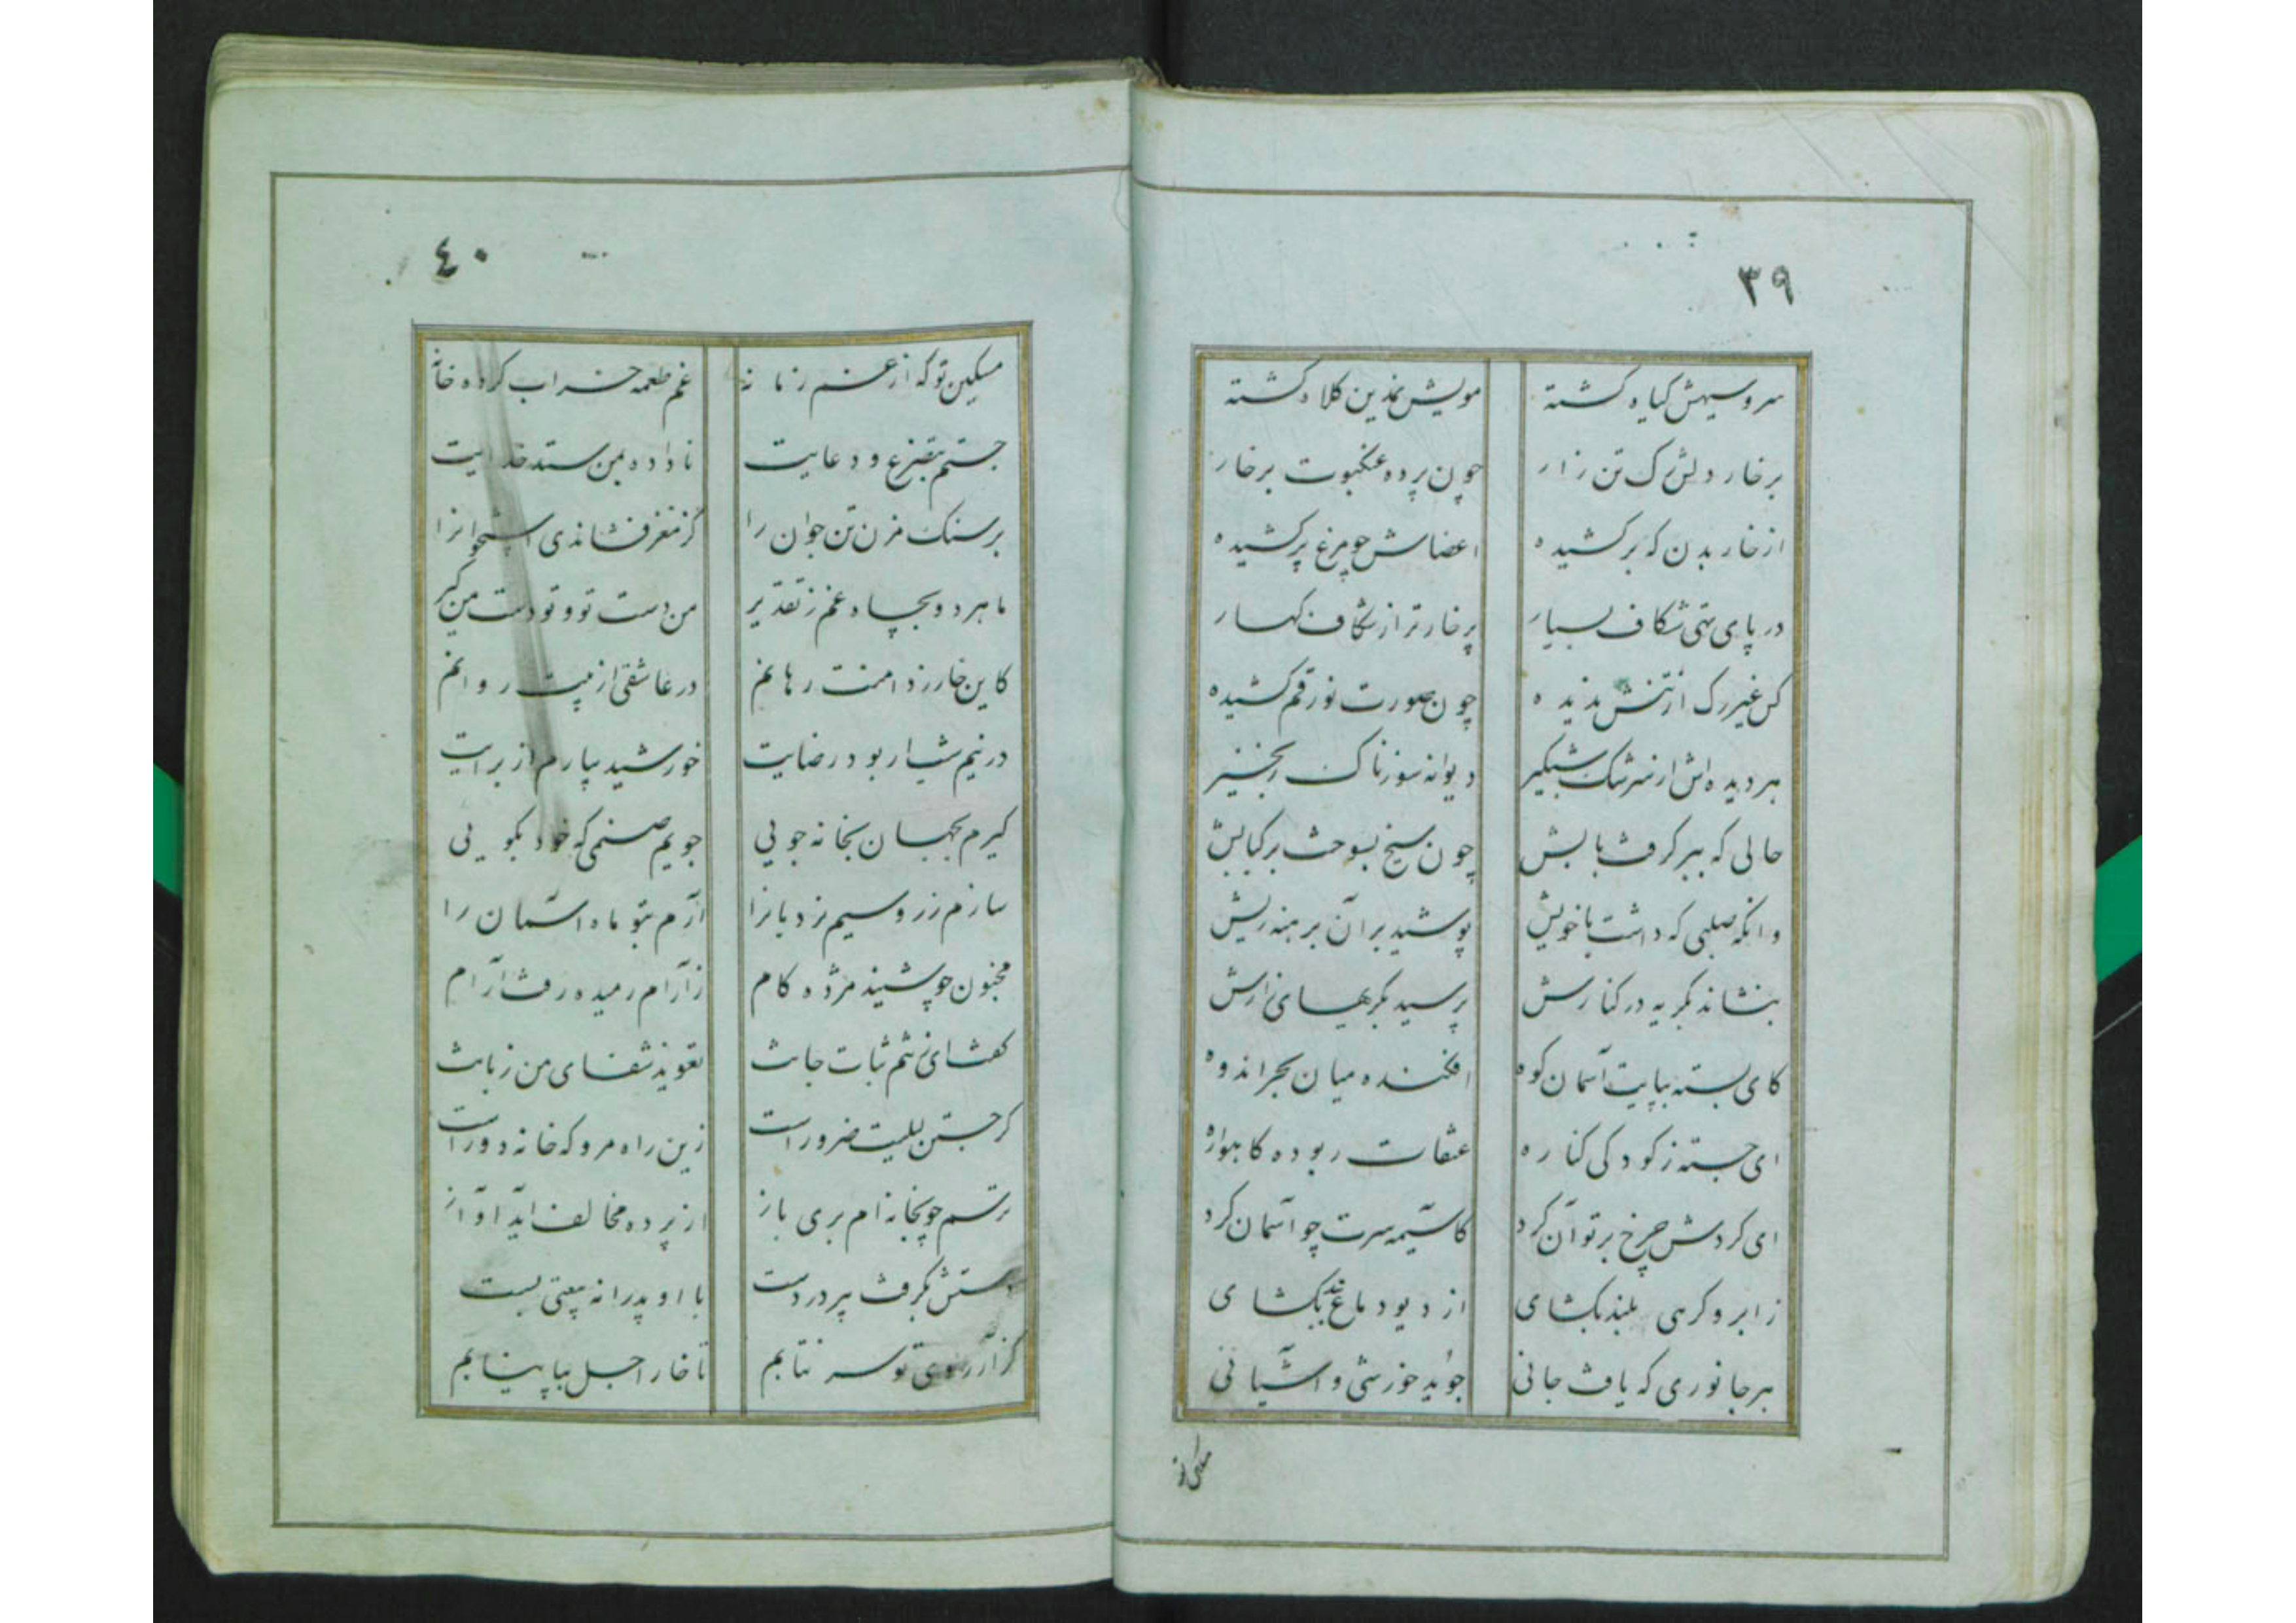 ۳۹
سرو سهیش گیاه گشته مویش نمدین کلاه گشته
برخار دلش رک تن زار چون پرده عنکبوت برخار
از خار بدن که برکشیده اعضاش چو مرغ پرکشیده
در پای تهی شکاف بسیار پرخارتر از شکاف کهسار
کس غیر رک از تنش ندیده چون صورت نو رقم کشیده
هر دیده اش از سرشک شبگیر دیوانه سوزناک زنجیر
حالی که ببر کرفت بابش چون سیخ بسوخت بر کبابش
وانگه صلبی که داشت با خویش پوشید بر آن برهنه ریش
بنشاند بگریه در کنارش پرسید بگریهای زارش
کای بسته بپایت آسمان کوه افکنده میان بحر اندوه
ای جسته ز کودکی کناره عنقات ربوده گاهواره
ای کردش چرخ بر تو آن کرد کاسیمه سرت چو آسمان کرد
ز ابرو کرهی بلند بکشای از دیو دماغ بند بکشای
هر جانوری که یافت جانی جوید خورشی و آشیانی
مسکین تو
۴۰
مسکین تو که از غم زمانه غم طعمه خراب کرده خانه
جستم بتضرع و دعایت ناداده بمن ستد خدایت
بر سنک مزن تن جوان را کز مغز فشاندی استخوانرا
ما هر دو بچاه غم ز تقدیر من دست تو و تو دست من گیر
کاین خار ز دامنت رهانم در عاشقی از پیت روانم
در نیم شب ار بود رضایت خورشید بیارم از برایت
کیرم بجهان بخانه جویی جویم صنمی که خود بگویی
سازم زر و سیم نردبانرا آرم بتو ماه آسمان را
مجنون چو شنید مژده کام ز آرام رمیده رفت آرام
گفت ای نی ثبات جانت تعویذ شفای من زبانت
گر جستن لیلیت ضرور است زین راه مرو که خانه دور است
ترسم چو بخانه ام بری باز از پرده مخالف آید آواز
دستش بگرفت پیر در دست با او پدرانه بیعتی بست
کز آرزوی تو سر نتابم تا خار اجل بپا بیابم